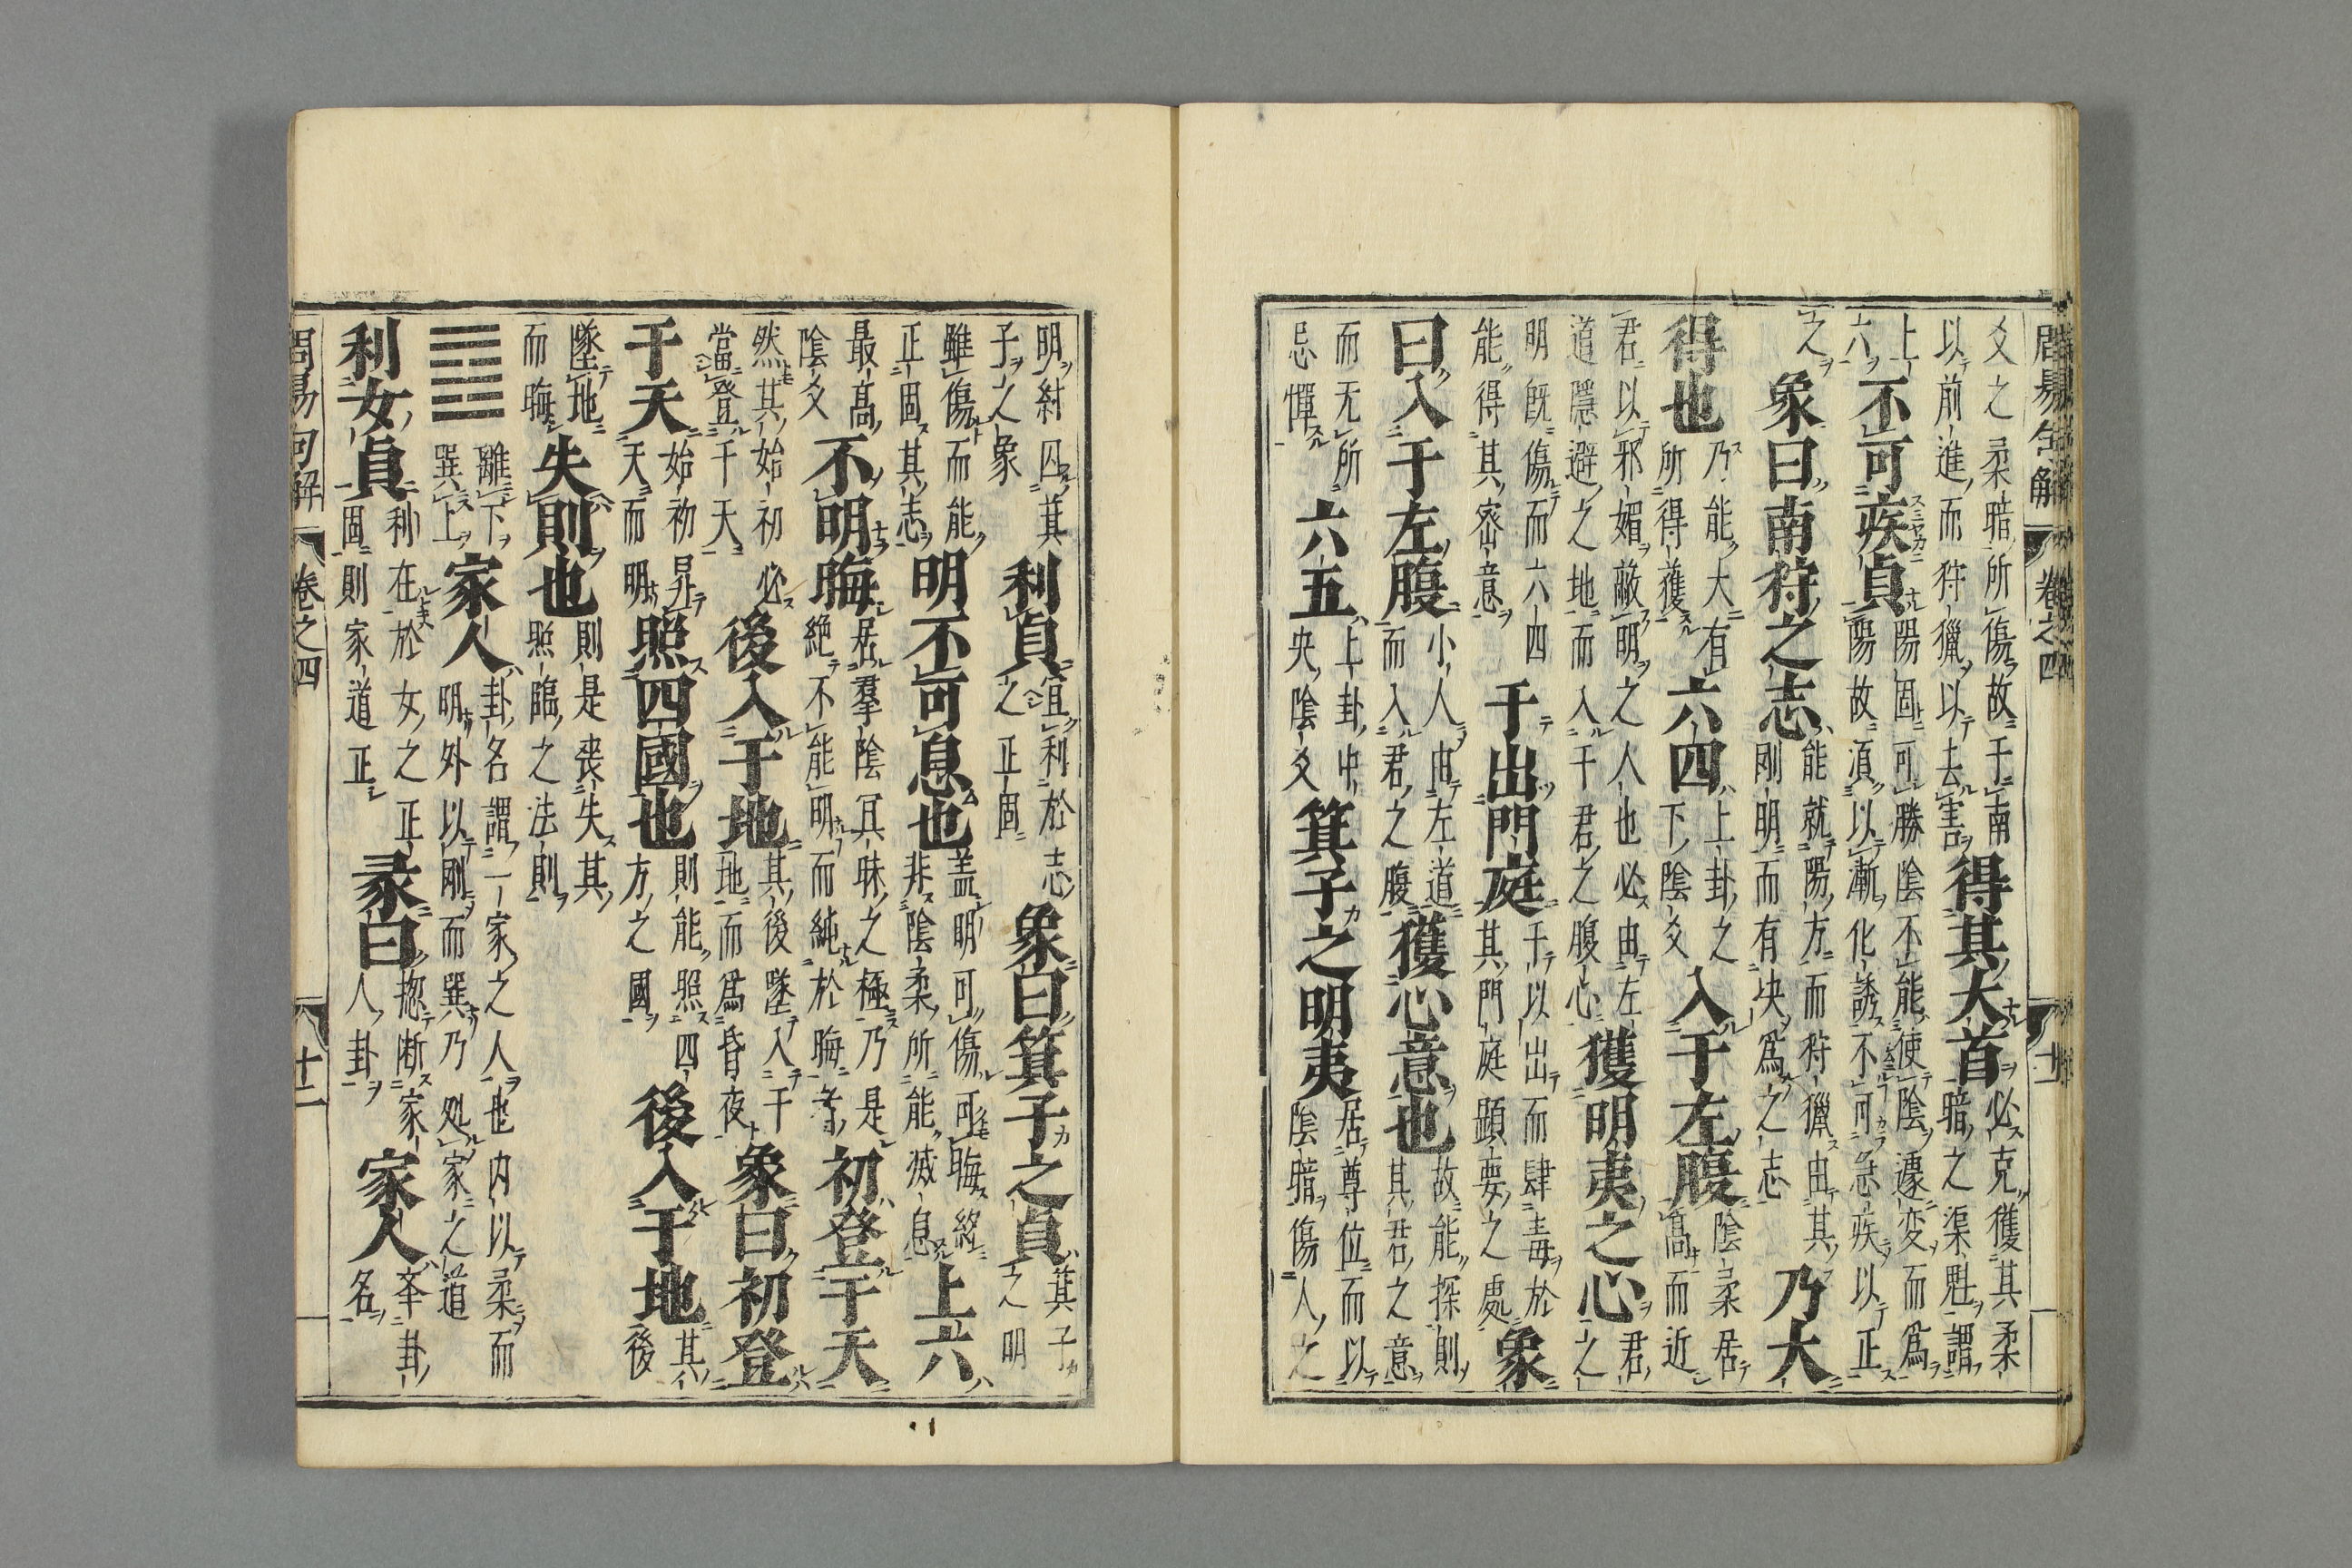 周易句解 卷之四 十一
爻之柔暗所傷故于南
以前進而狩獵以去害
得其大首
必克獲其柔
暗之渠魁謂
上
六
不可疾貞
陽固可勝陰不能使陰遽変而爲
陽故須以漸化誘不可急疾以正
之
象曰南狩之志
能就陽方而狩獵由其
剛明而有决爲之志
乃大
得也
乃能大有
所得獲
六四
上卦之
下陰爻
入于左腹
陰柔居
高而近
君以邪媚蔽明之人也必由左
道隱避之地而入于君之腹心
獲明夷之心
君
之
明既傷而六四
能得其密意
于出門庭
于以出而肆毒於
其門庭顕要之處
象
曰入于左腹
小人由左道
而入君之腹
獲心意也
故能探則
其君之意
而无所
忌憚
六五
上卦中
央陰爻
箕子之明夷
居尊位而以
陰暗傷人之
明紂囚箕
子之象
利貞
宜利於志
之正固
象曰箕子之貞
箕子
之明
雖傷而能
正固其志
明不可息也
盖明可傷可晦終
非陰柔所能滅息
上六
最高
陰爻
不明晦
居羣陰冥昧之極乃是
絶不能明而純於晦者
初登于天
然其始初必
當登于天
後入于地
其後墜入于
地而爲昏夜
象曰初登
于天
始初昇
天而明
照四國也
則能照四
方之國
後入于地
其
後
墜地
而晦
失則也
則是喪失其
照臨之法則
離下
巽上
家人
卦名謂一家之人也内以柔而
明外以剛而巽乃処家之道
利女貞
利在於女之正
固則家道正
彖曰
揔断家
人卦
家人
卦
名
周易句解 卷之四 十二